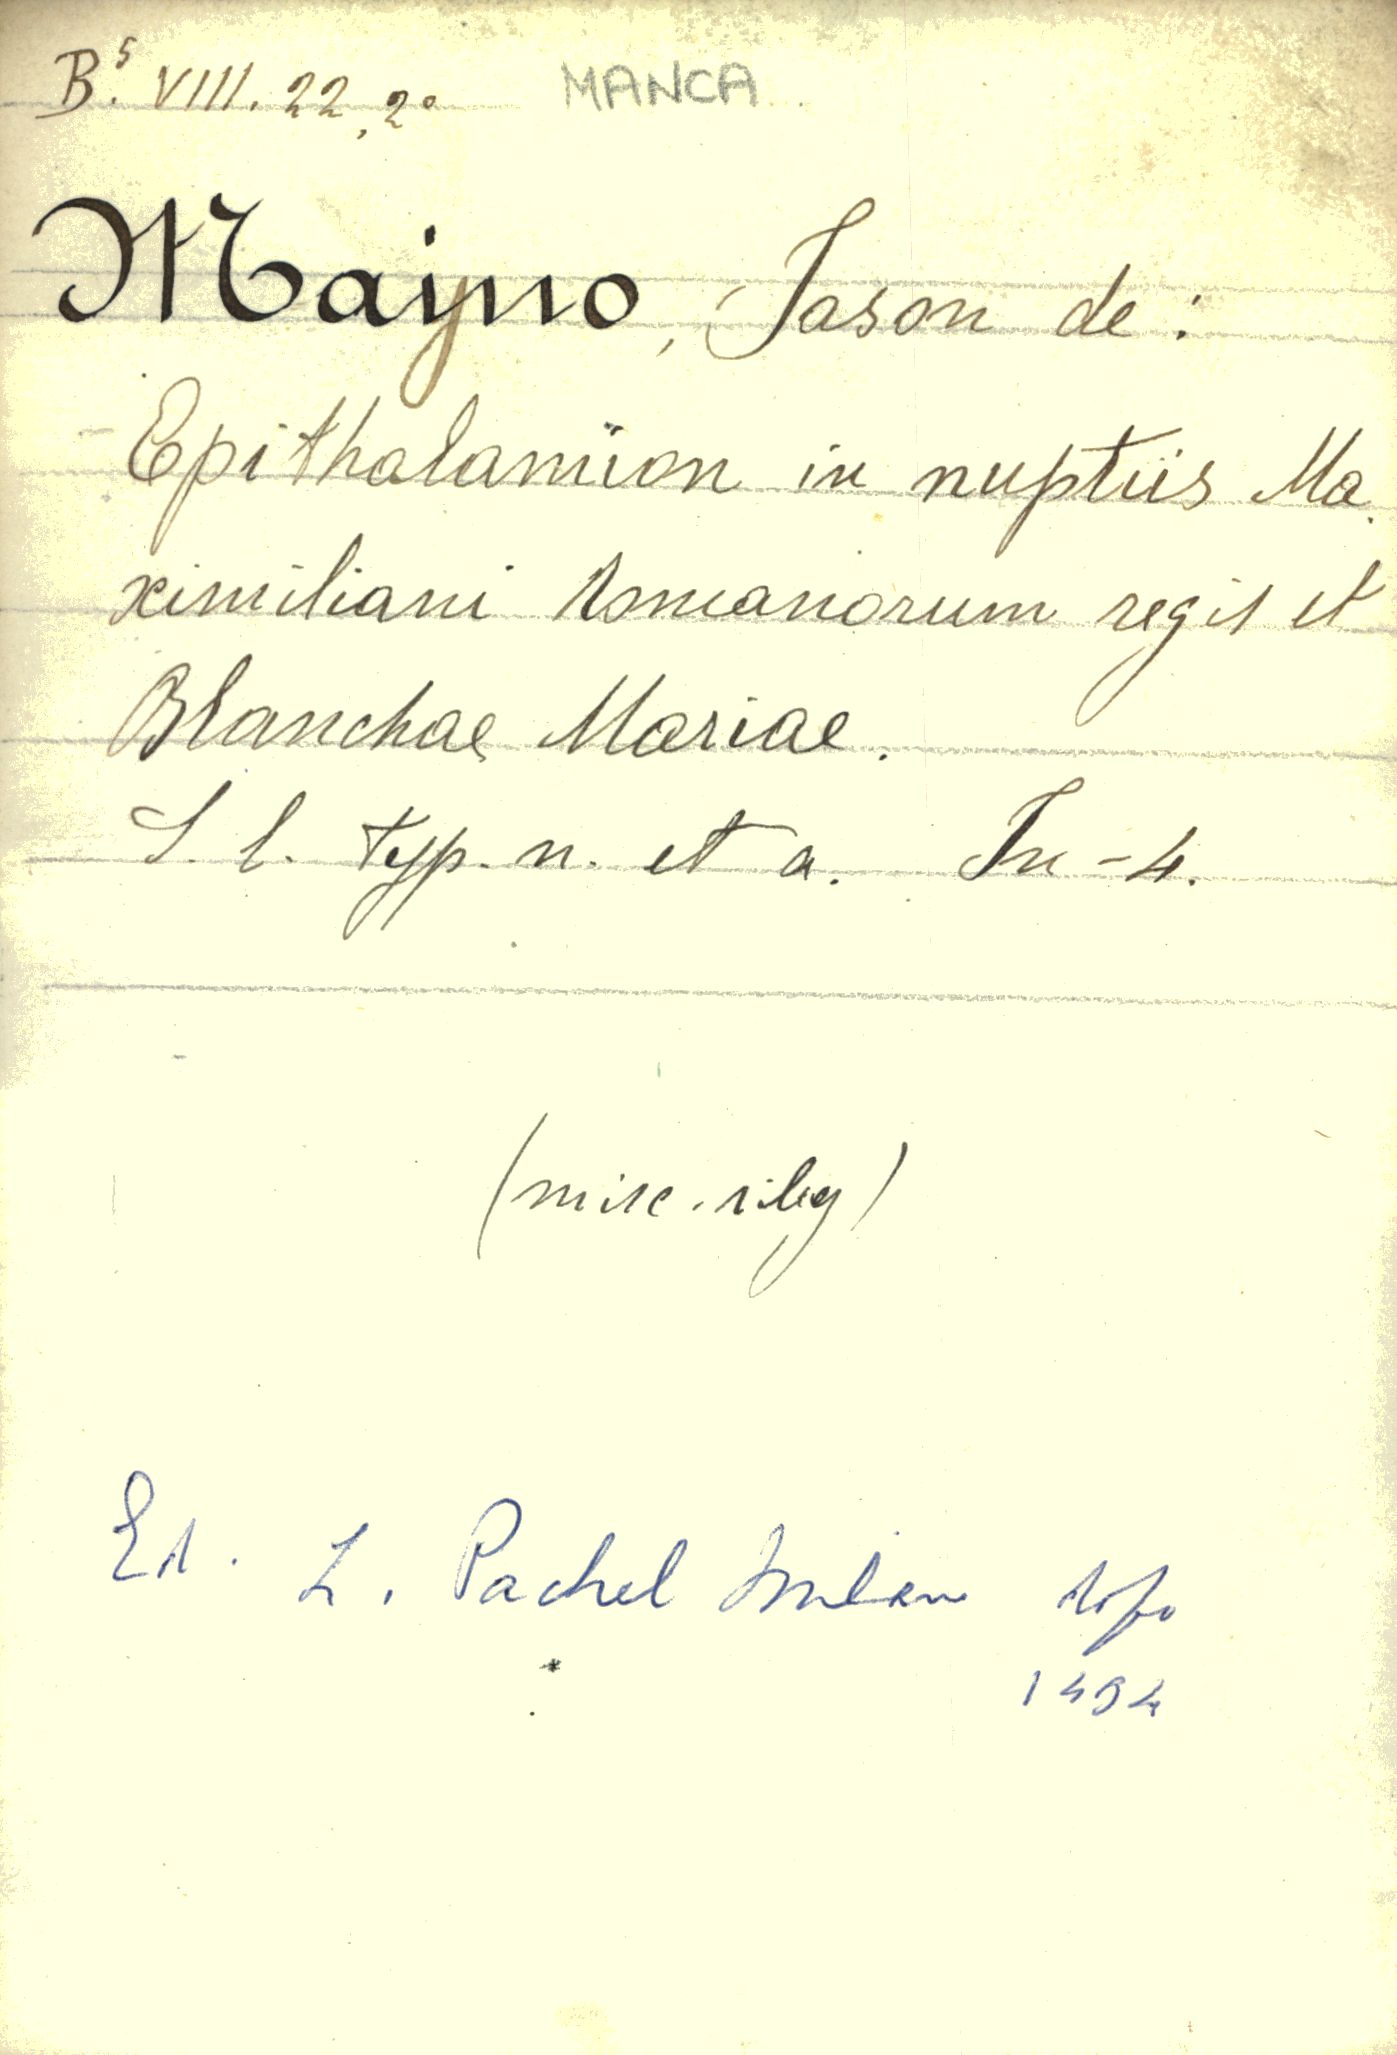 B.⁵ VIII. 22, 2° MANCA
Mayno, Jason de:
Epithalamion in nuptiis Ma
ximiliani Romanorum regis et
Blanchae Mariae.
S. l. typ. n. et a. In-4.
(misc. rileg)
Ed. L. Pachel Milan dopo
1494